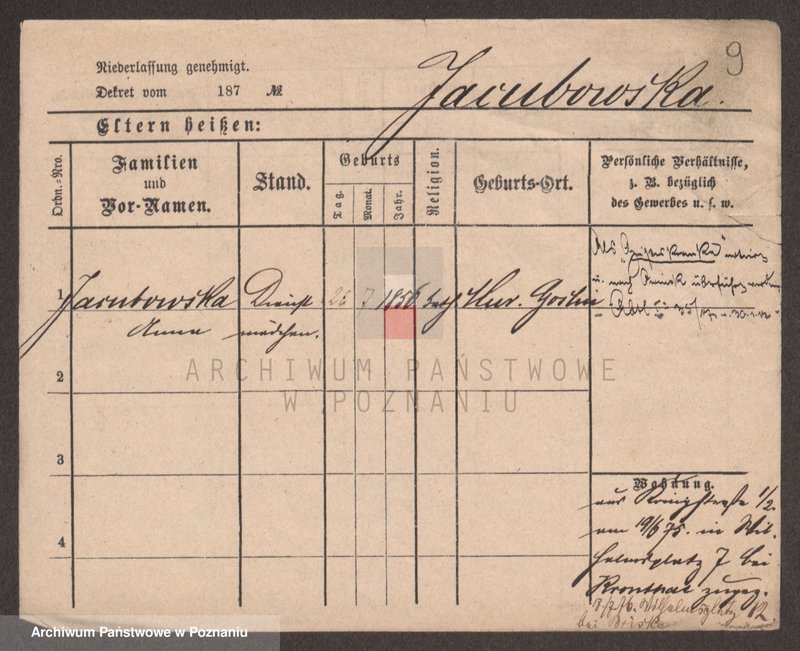 9
Niederlassung genehmigt.
Dekret vom 187 №
Jacubowska.
Eltern heißen:
Ordn.-Nro.
Familien
und
Vor-Namen.
Stand.
Geburts
Tag.
Monat.
Jahr.
Religion.
Geburts-Ort.
Persönliche Verhältnisse,
z. B. bezüglich
des Gewerbes u. s. w.
1
Jacubowska
Anna
Dienst
mädchen.
26 7 1856 kath Mur. Goslin
Als "Geisteskranke"
u. nach überführt
2
ARCHIWUM PAŃSTWOWE
W POZNANIU
3
4
Wohnung.
aus Königstraße 1/2
am 19/6 75. in Wil-
helmsplatz 7 bei
Kronthal zugez.
Wilhelmsplatz 12
bei Briske
Archiwum Państwowe w Poznaniu